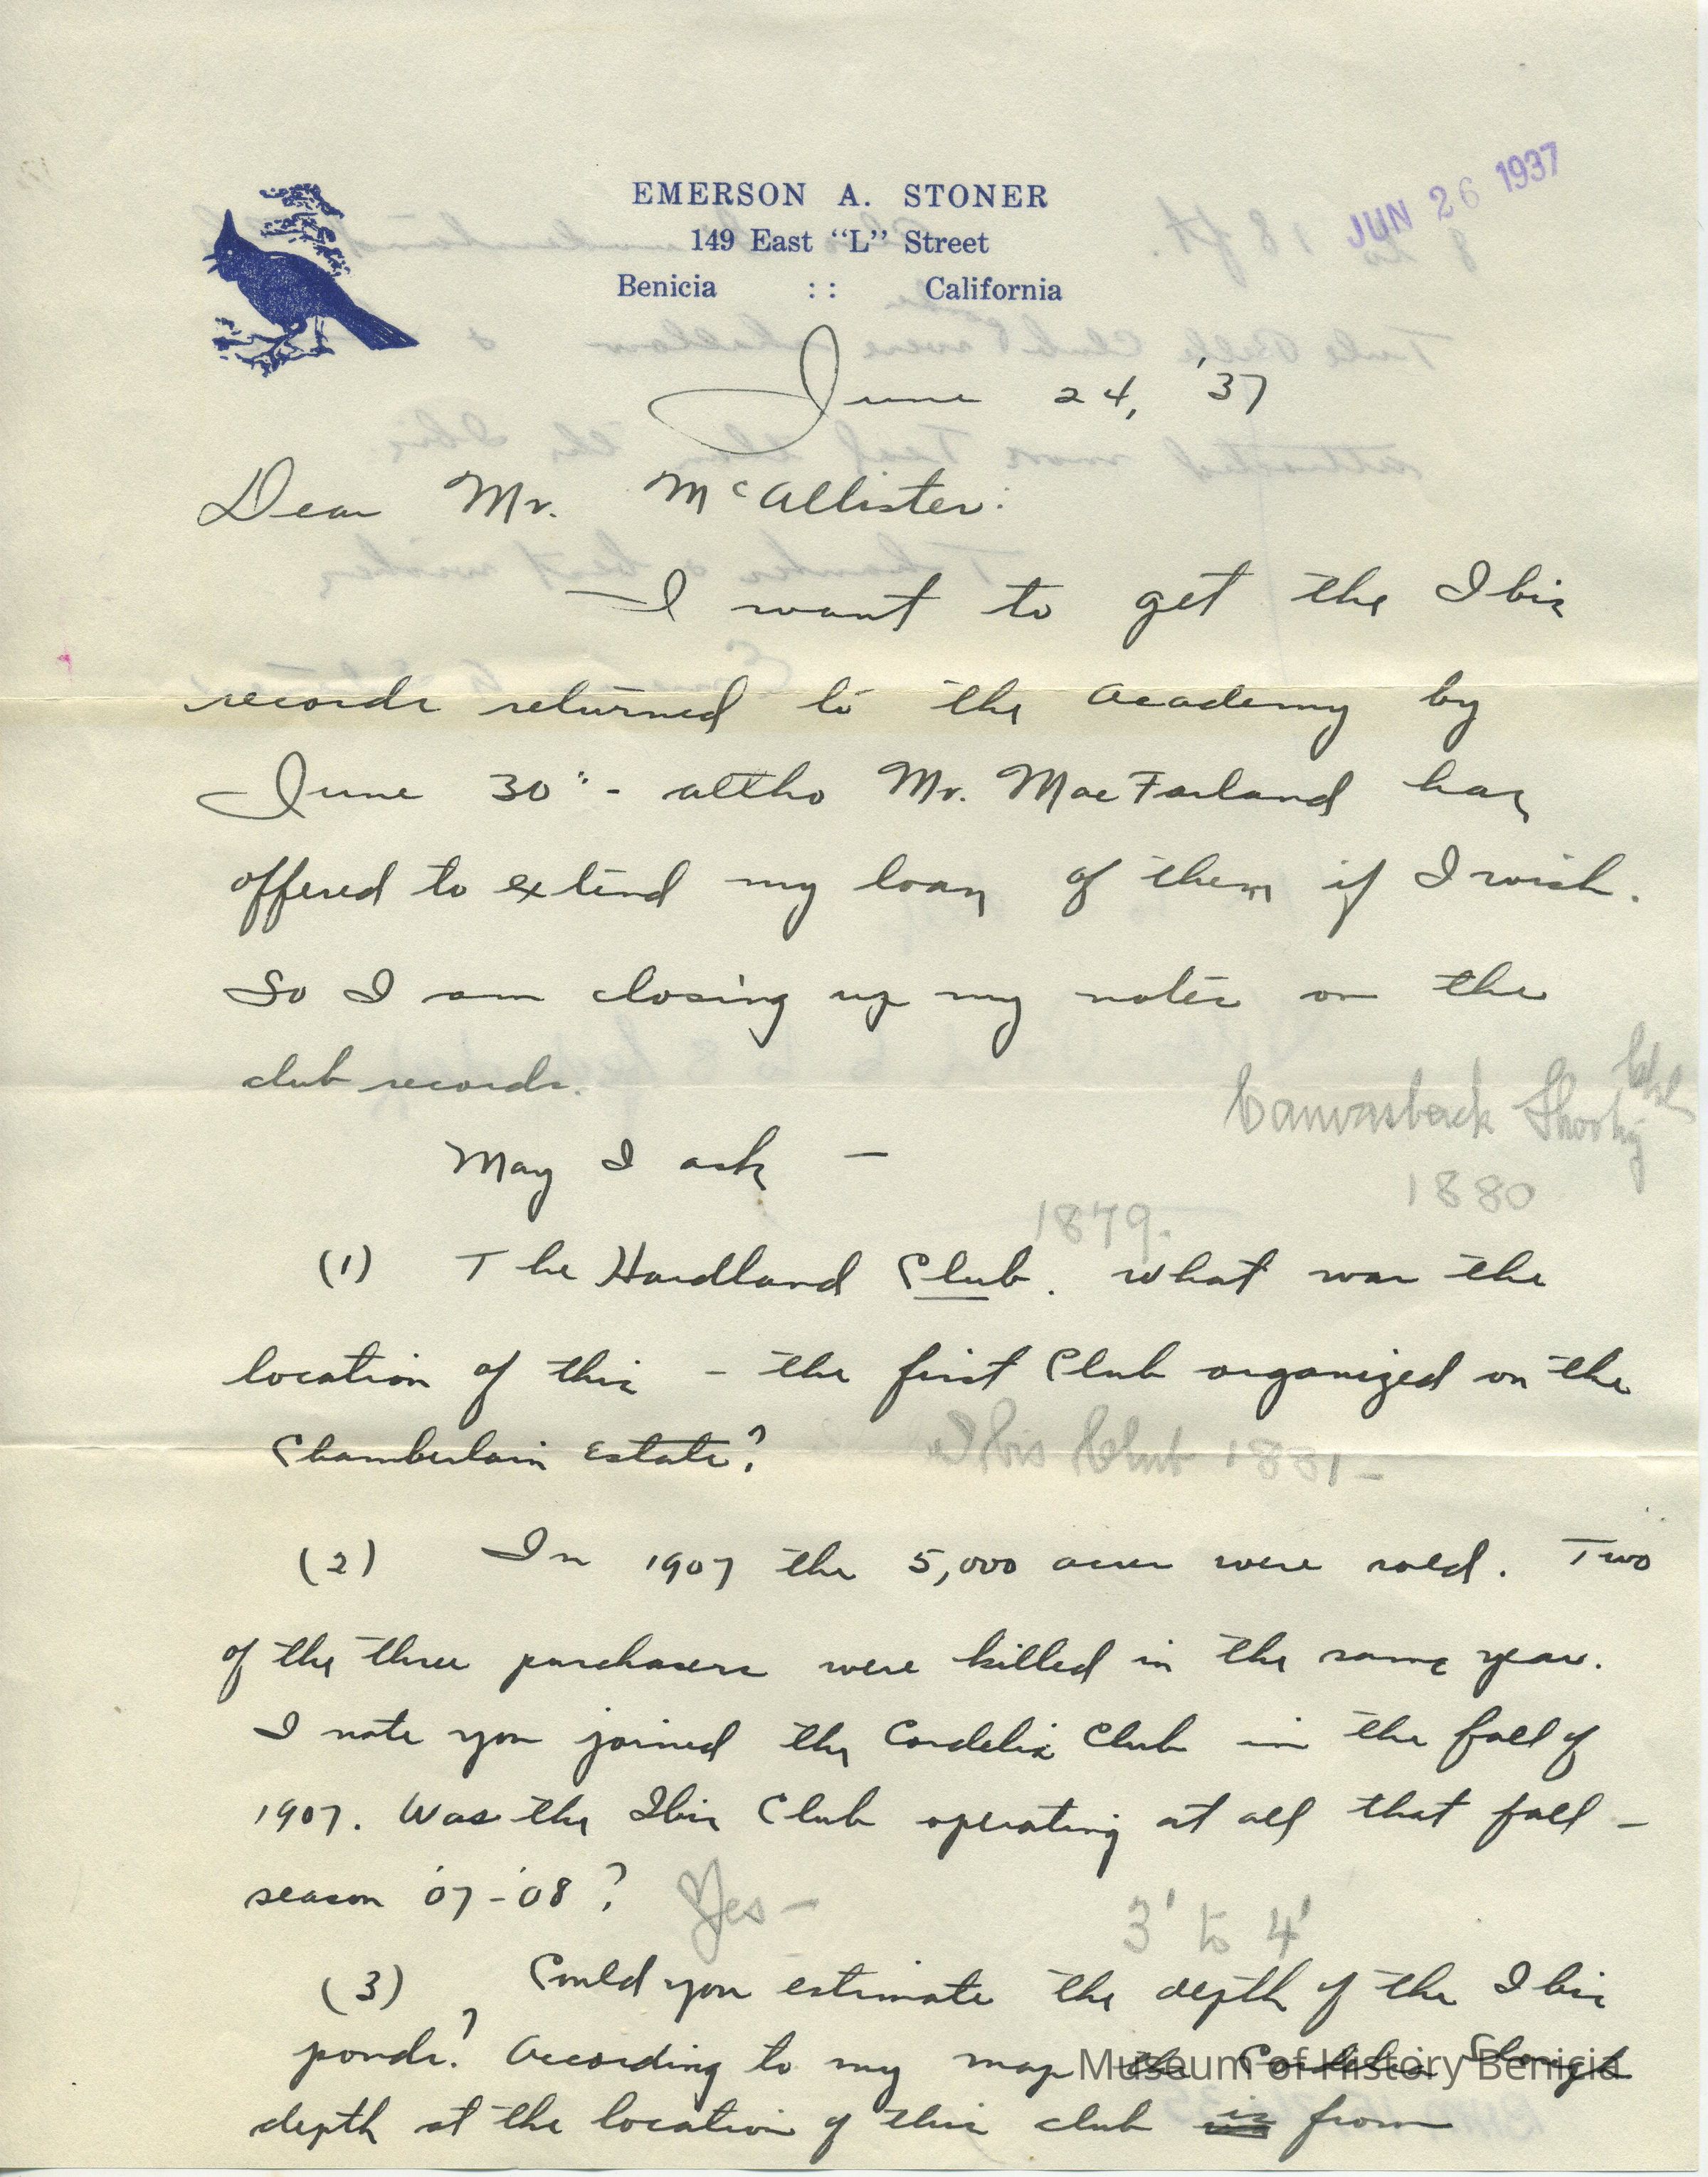 EMERSON A. STONER
149 East “L” Street
Benicia :: California
JUN 26 1937
June 24, '37
Dear Mr. McAllister:
I want to get the Ibis
records returned to the Academy by
June 30" - altho Mr. MacFarland has
offered to extend my loan of them if I wish.
So I am closing up my notes on the
club records.
Canvasback Shooting Club
1880
May I ask —
1879.
(1) The Hardland Club. What was the
location of this - the first Club organized on the
Chamberlain Estate?
Ibis Club 1881 -
(2) In 1907 the 5,000 acres were sold. Two
of the three purchasers were killed in the same year.
I note you joined the Cordelia Club in the fall of
1907. Was the Ibis Club operating at all that fall -
season '07-'08?
Yes -
3' to 4'
(3) Could you estimate the depth of the Ibis
ponds? According to my map the Cordelia Slough
depth at the location of this club is from
Museum of History Benicia